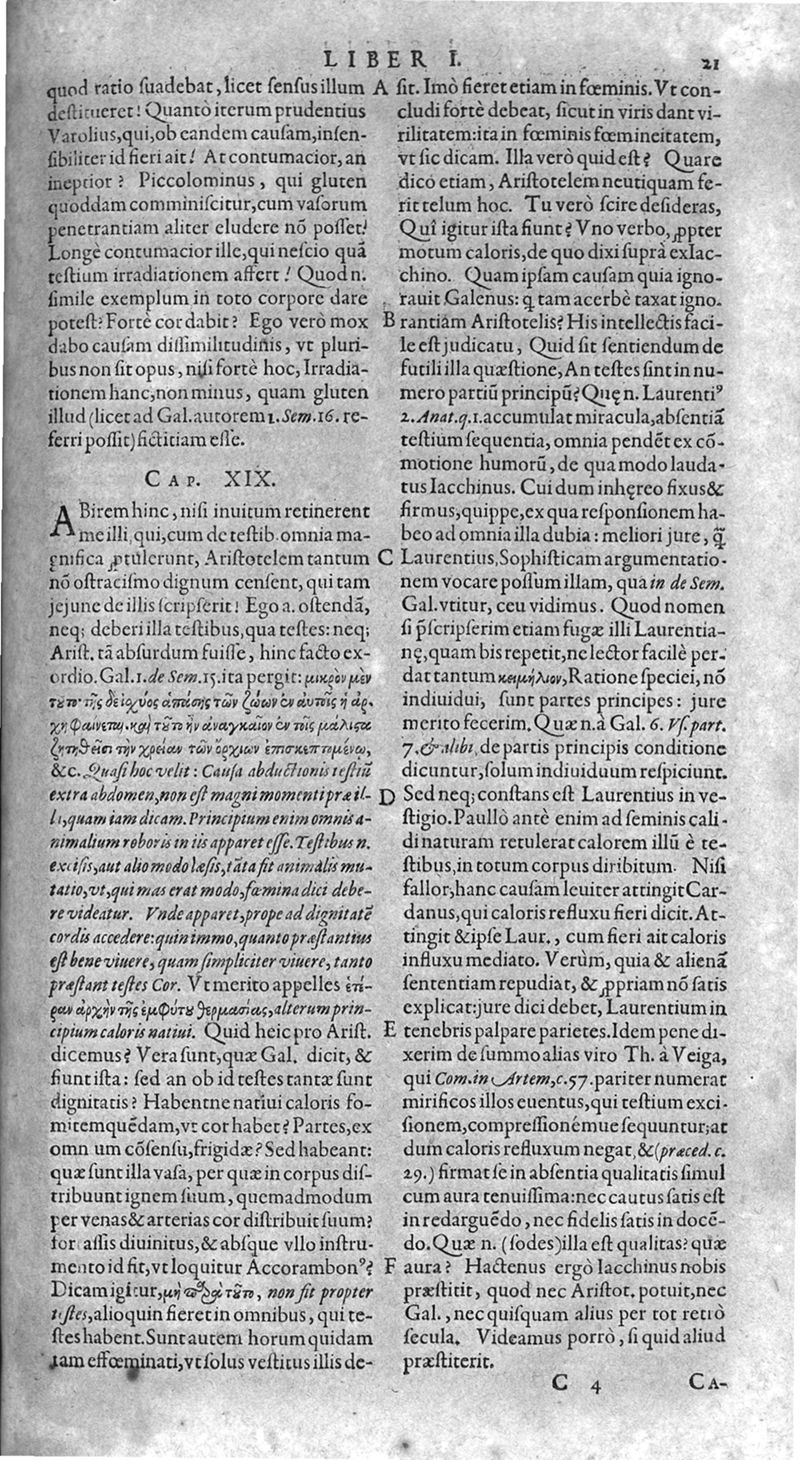 LIBER I. 21
quod ratio ſuadebat, licet ſenſus illum
deſtitueret! Quantò iterum prudentius
Varolius, qui, ob eandem cauſam, inſen-
ſibiliter id fieri ait! At contumacior, an
ineptior? Piccolominus, qui gluten
quoddam comminiſcitur, cum vaſorum
penetrantiam aliter eludere nõ poſſet!
Longè contumacior ille, qui neſcio quã
teſtium irradiationem affert! Quod n.
ſimile exemplum in toto corpore dare
poteſt? Fortè cor dabit? Ego verò mox
dabo cauſam diſſimilitudinis, vt pluri-
bus non ſit opus, niſi fortè hoc, Irradia-
tionem hanc, non minus, quam gluten
illud (licet ad Gal. autorem 1. Sem. 16. re-
ferri poſſit) fictitiam eſſe.
CAP. XIX.
ABirem hinc, niſi inuitum retinerent
me illi, qui, cum de teſtib. omnia ma-
gnifica ꝓtulerunt, Ariſtotelem tantum
nõ oſtraciſmo dignum cenſent, qui tam
jejune de illis ſcripſerit! Ego a. oſtendã,
neq; deberi illa teſtibus, qua teſtes: neq;
Ariſt. tã abſurdum fuiſſe, hinc facto ex-
ordio. Gal. 1. de Sem. 15. ita pergit: μικρὸν μὲν
τοῦτο· τῆς δὲ ἰσχύος ἁπάσης τῶν ζώων ἐν αὐτοῖς ἡ ἀρ-
χὴ φαίνεται. καὶ τοῦτο ἦν ἀναγκαῖον ἐν τοῖς μάλιστα
ζητηθῆναι τὴν χρείαν τῶν ὄρχεων ἐπισκεπτομένῳ,
&c. Quaſi hoc velit: Cauſa abductionis teſtiũ
extra abdomen, non eſt magni momenti præ il-
li, quam iam dicam. Principium enim omnis a-
nimalium roboris in iis apparet eſſe. Teſtibus n.
exciſis, aut alio modo læſis, tãta fit animalis mu-
tatio, vt, qui mas erat modo, fœmina dici debe-
re videatur. Vnde apparet, prope ad dignitatẽ
cordis accedere: quin immo, quanto præſtantius
eſt bene viuere, quam ſimpliciter viuere, tanto
præſtant teſtes Cor. Vt merito appelles ἑτέ-
ραν ἀρχὴν τῆς ἐμφύτου θερμασίας, alterum prin-
cipium caloris natiui. Quid heic pro Ariſt.
dicemus? Vera ſunt, quæ Gal. dicit, &
fiunt iſta: ſed an ob id teſtes tantæ ſunt
dignitatis? Habentne natiui caloris fo-
mitem quẽdam, vt cor habet? Partes, ex
omnium cõſenſu, frigidæ? Sed habeant:
quæ ſunt illa vaſa, per quæ in corpus diſ-
tribuunt ignem ſuum, quemadmodum
per venas & arterias cor diſtribuit ſuum?
for aſſis diuinitus, & abſque vllo inſtru-
mento id fit, vt loquitur Accorambonꝰ?
Dicam igitur, μὴ παρὰ τοῦτο, non fit propter
teſtes, alioquin fieret in omnibus, qui te-
ſtes habent. Sunt autem horum quidam
tam effœminati, vt ſolus veſtitus illis de-
A ſit. Imò fieret etiam in fœminis. Vt con-
cludi fortè debeat, ſicut in viris dant vi-
rilitatem: ita in fœminis fœmineitatem,
vt ſic dicam. Illa verò quid eſt? Quare
dico etiam, Ariſtotelem neutiquam fe-
rit telum hoc. Tu verò ſcire deſideras,
Quî igitur iſta fiunt? Vno verbo, ꝓpter
motum caloris, de quo dixi ſuprà ex Iac-
chino. Quam ipſam cauſam quia igno-
rauit Galenus: q̃ tam acerbè taxat igno-
B rantiam Ariſtotelis? His intellectis faci-
le eſt judicatu, Quid ſit ſentiendum de
futili illa quæſtione, An teſtes ſint in nu-
mero partiũ principũ? Quę n. Laurentiꝰ
2. Anat. q. 1. accumulat miracula, abſentiã
teſtium ſequentia, omnia pendẽt ex cõ-
motione humorũ, de qua modo lauda-
tus Iacchinus. Cui dum inhęreo fixus &
firmus, quippe, ex qua reſponſionem ha-
beo ad omnia illa dubia: meliori jure, q̃
C Laurentius, Sophiſticam argumentatio-
nem vocare poſſum illam, qua in de Sem.
Gal. vtitur, ceu vidimus. Quod nomen
ſi p̃ſcripſerim etiam fugæ illi Laurentia-
nę, quam bis repetit, ne lector facilè per-
dat tantum κειμήλιον, Ratione ſpeciei, nõ
indiuidui, ſunt partes principes: jure
merito fecerim. Quæ n. à Gal. 6. Vſ. part.
7. & alibi, de partis principis conditione
dicuntur, ſolum indiuiduum reſpiciunt.
D Sed neq; conſtans eſt Laurentius in ve-
ſtigio. Paullò antè enim ad ſeminis cali-
di naturam retulerat calorem illũ è te-
ſtibus, in totum corpus diribitum. Niſi
fallor, hanc cauſam leuiter attingit Car-
danus, qui caloris refluxu fieri dicit. At-
tingit & ipſe Laur., cum fieri ait caloris
influxu mediato. Verùm, quia & alienã
ſententiam repudiat, & ꝓpriam nõ ſatis
explicat: jure dici debet, Laurentium in
E tenebris palpare parietes. Idem pene di-
xerim de ſummo alias viro Th. à Veiga,
qui Com. in Artem, c. 57. pariter numerat
mirificos illos euentus, qui teſtium exci-
ſionem, compreſſionémue ſequuntur; at
dum caloris refluxum negat, & (præced. c.
29.) firmat ſe in abſentia qualitatis ſimul
cum aura tenuiſſima: nec cautus ſatis eſt
in redarguẽdo, nec fidelis ſatis in docẽ-
do. Quæ n. (ſodes) illa eſt qualitas? quæ
F aura? Hactenus ergò Iacchinus nobis
præſtitit, quod nec Ariſtot. potuit, nec
Gal., nec quiſquam alius per tot retrò
ſecula. Videamus porrò, ſi quid aliud
præſtiterit.
C 4 CA-